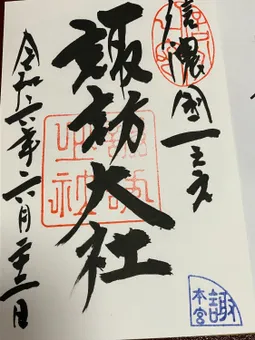 信濃國一之宮
諏訪大社
令和六年六月二十二日
諏訪大社
諏
本宮